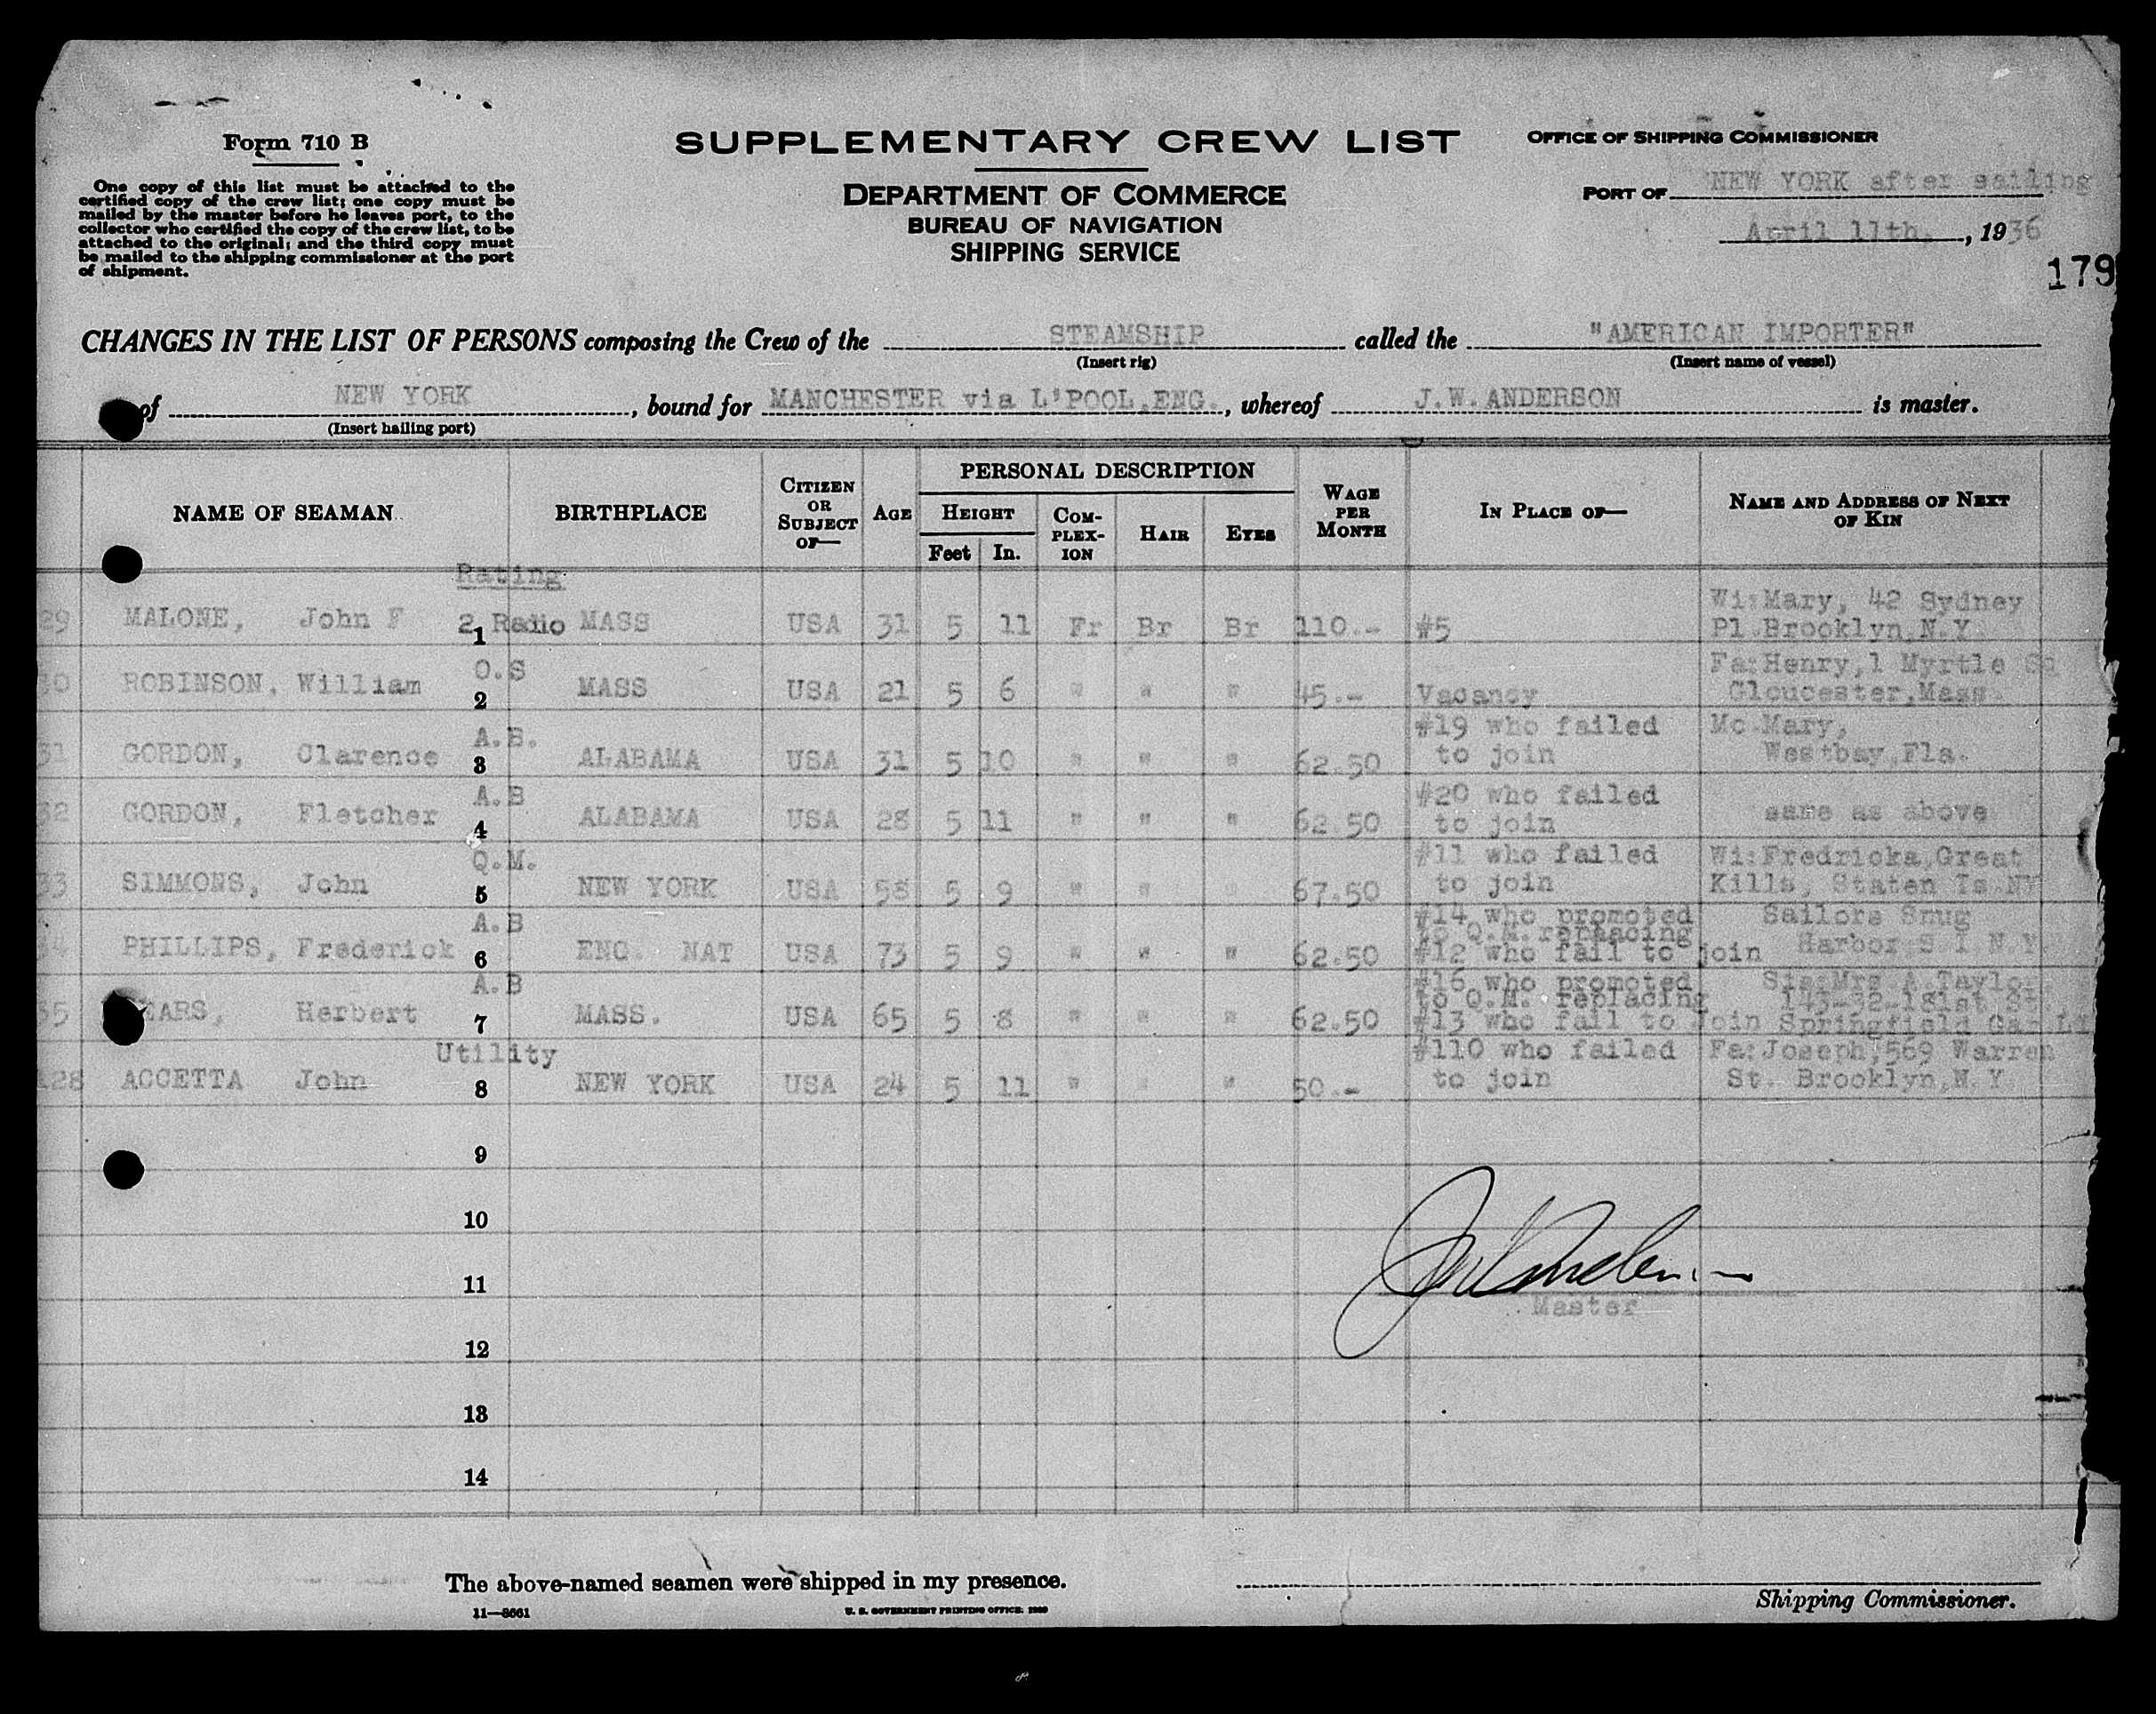 Form 710 B
One copy of this list must be attached to the
certified copy of the crew list; one copy must be
mailed by the master before he leaves port, to the
collector who certified the copy of the crew list, to be
attached to the original; and the third copy must
be mailed to the shipping commissioner at the port
of shipment.
SUPPLEMENTARY CREW LIST
DEPARTMENT OF COMMERCE
BUREAU OF NAVIGATION
SHIPPING SERVICE
OFFICE OF SHIPPING COMMISSIONER
PORT OF NEW YORK after sailing
April 11th, , 1936
179
CHANGES IN THE LIST OF PERSONS composing the Crew of the STEAMSHIP called the "AMERICAN IMPORTER"
(Insert rig) (Insert name of vessel)
of NEW YORK , bound for MANCHESTER via L'POOL.ENG. , whereof J.W.ANDERSON is master.
(Insert hailing port)
NAME OF SEAMAN BIRTHPLACE CITIZEN OR SUBJECT OF— AGE PERSONAL DESCRIPTION WAGE PER MONTH IN PLACE OF— NAME AND ADDRESS OF NEXT OF KIN
HEIGHT COMPLEXION HAIR EYES
Feet In.
Rating
29 MALONE, John F 2 Radio 1 MASS USA 31 5 11 Fr Br Br 110.- #5 Wi:Mary, 42 Sydney
Pl.Brooklyn.N.Y.
ROBINSON, William O.S 2 MASS USA 21 5 6 " " " 45.- Vacancy Fa:Henry,1 Myrtle Sq
Gloucester,Mass.
31 GORDON, Clarence A.B. 3 ALABAMA USA 31 5 10 " " " 62.50 #19 who failed Mc Mary,
to join Westbay,Fla.
32 GORDON, Fletcher A.B 4 ALABAMA USA 28 5 11 " " " 62.50 #20 who failed
to join same as above
33 SIMMONS, John Q.M. 5 NEW YORK USA 58 5 9 " " " 67.50 #11 who failed Wi:Fredricka,Great
to join Kills, Staten Is.NY
PHILLIPS, Frederick A.B 6 ENG. NAT USA 73 5 9 " " " 62.50 #14 who promoted Sailors Snug
to Q.M. replacing Harbor S I N.Y
#12 who fail to join
35 EARS, Herbert A.B 7 MASS. USA 65 5 8 " " " 62.50 #16 who promoted Sis:Mrs A.Taylo
to Q.M. replacing 143-32-181st St
#13 who fail to join Springfield Ga
128 ACCETTA John Utility 8 NEW YORK USA 24 5 11 " " " 50.- #110 who failed Fa:Joseph,569 Warren
to join St. Brooklyn,N.Y
9
10
11
Master
12
13
14
The above-named seamen were shipped in my presence.
Shipping Commissioner.
11—8661
U. S. GOVERNMENT PRINTING OFFICE: